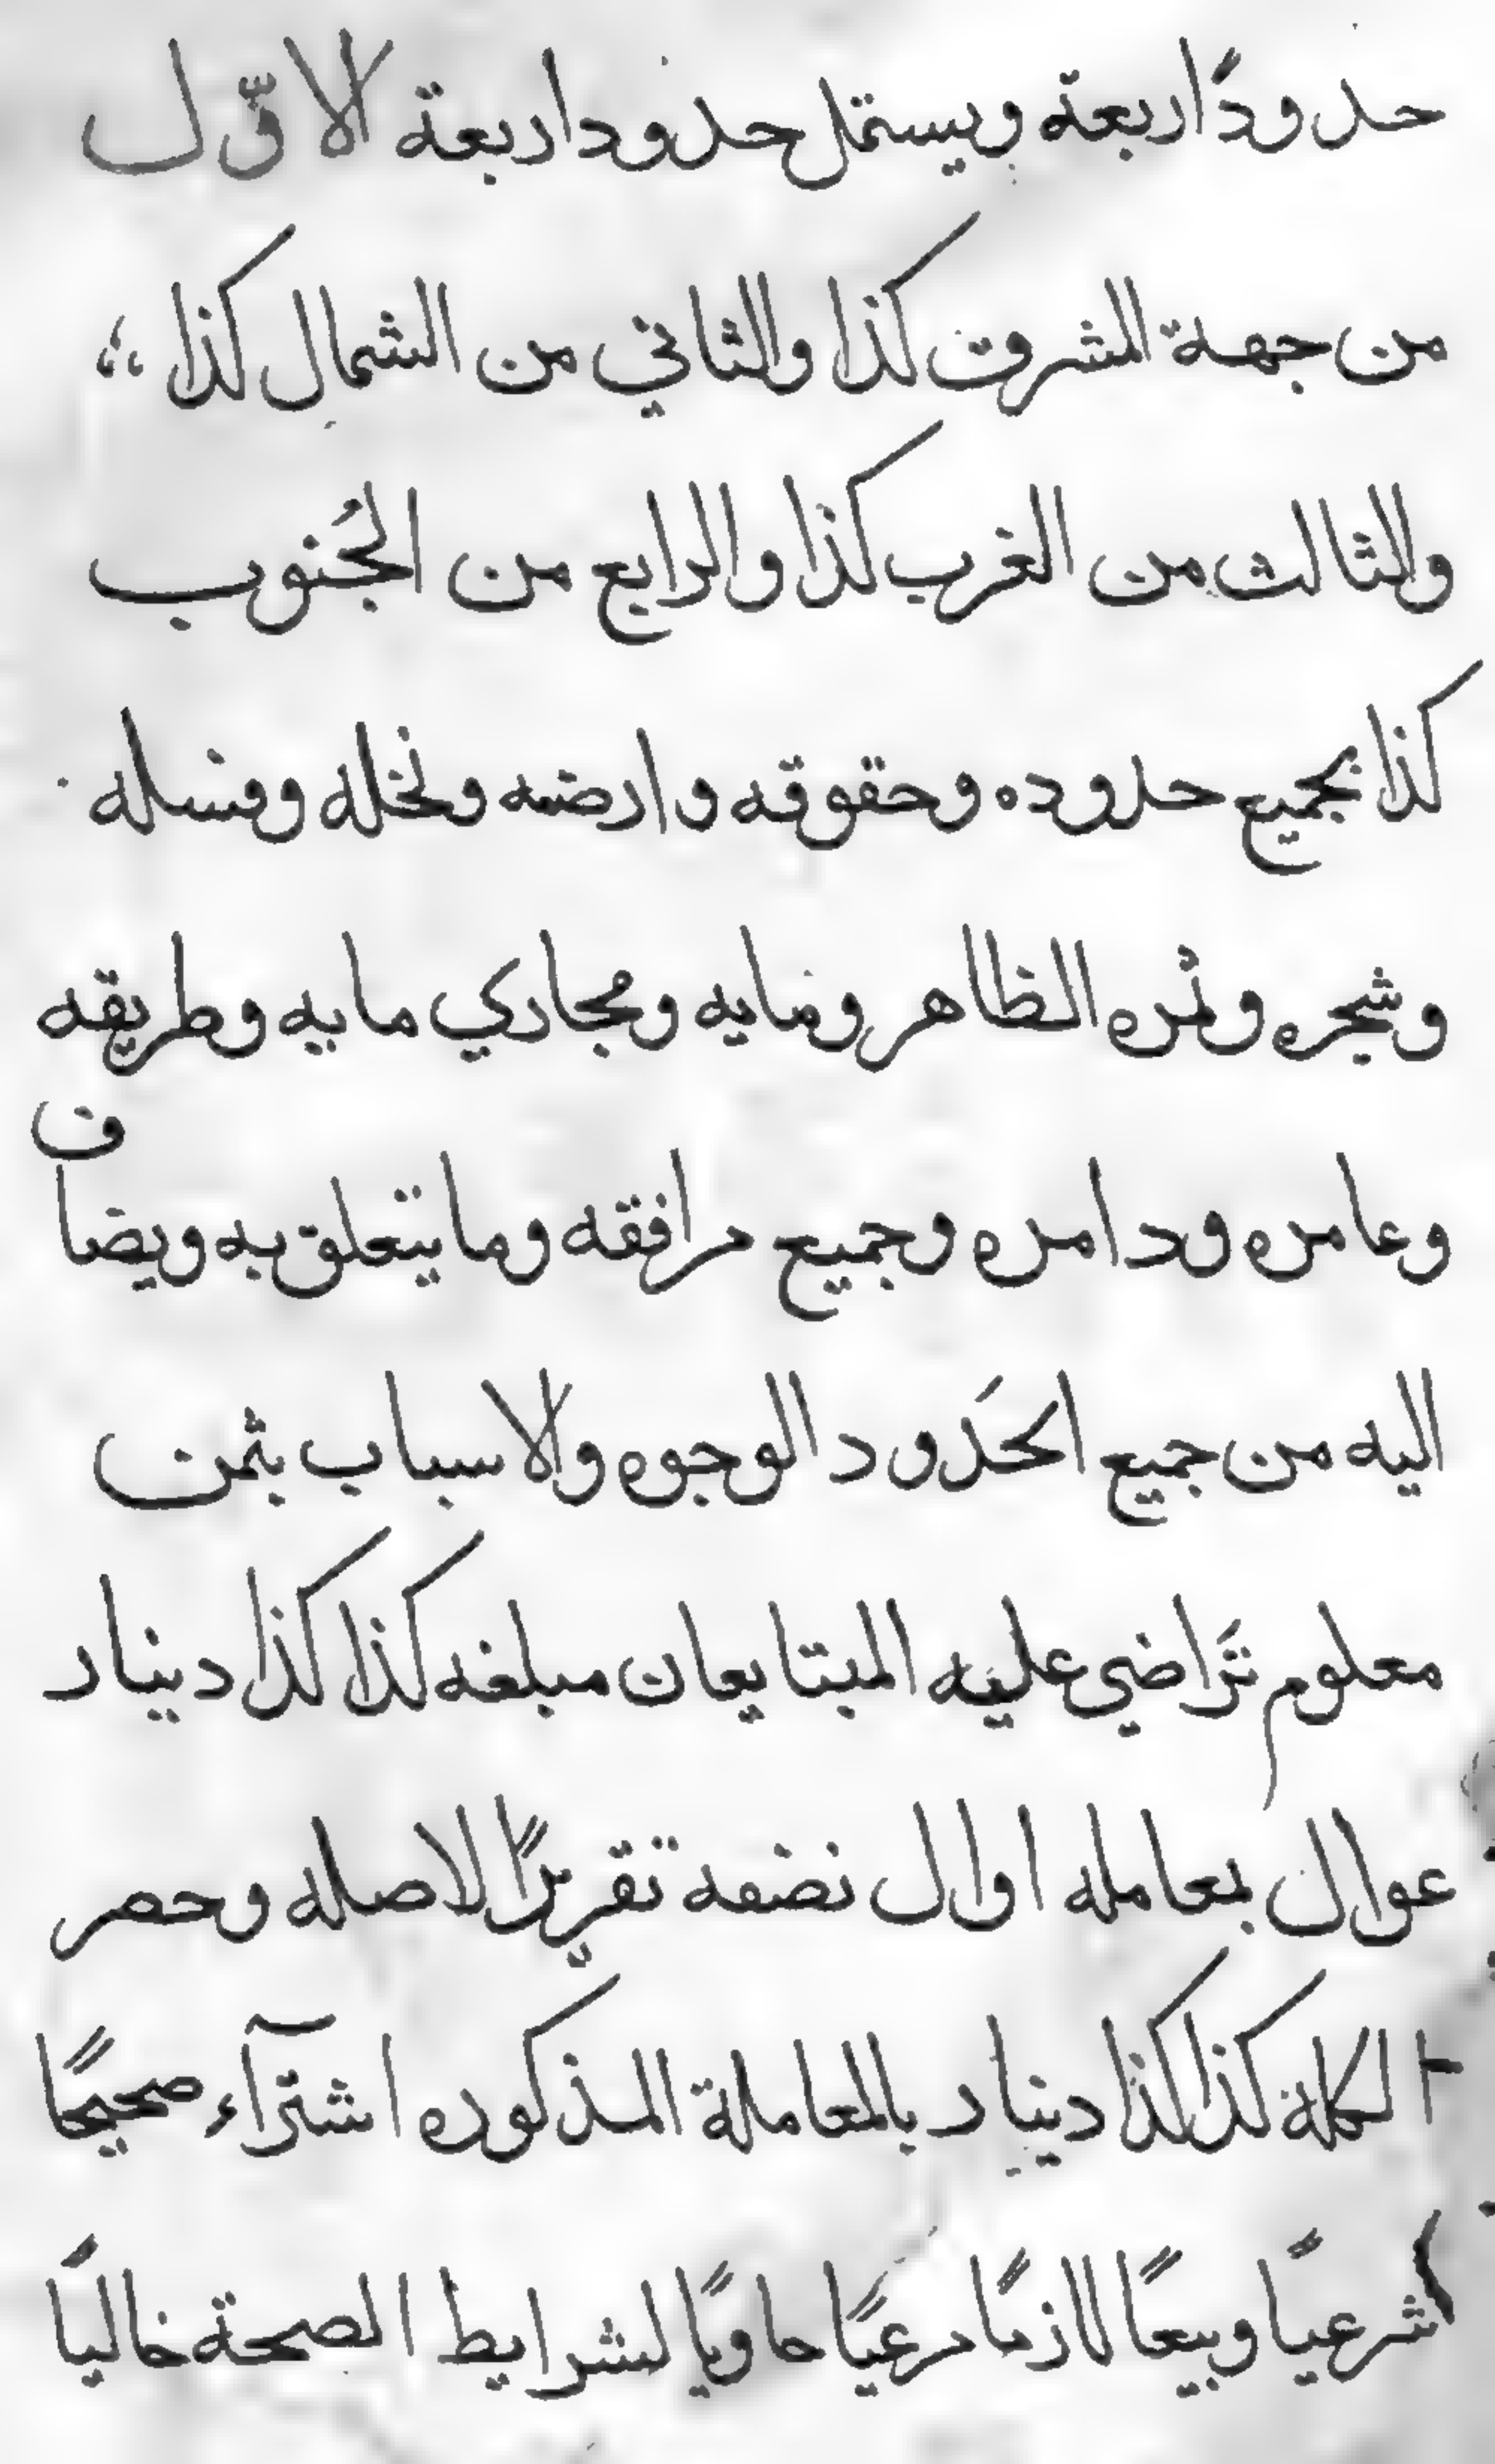 حدودًا اربعة ويستمل حدودا اربعة الاوّل
من جهة المشرق كذا والثاني من الشمال كذا ،،
والثالث من الغرب كذا والرابع من الجُنوب
كذا بجميع حدوده وحقوقه وارضه ونخله وفسله
وشجره وثمره الظاهر ومايه ومجاري مايه وطريقه
وعامره ودامره وجميع مرافقه وما يتعلق به ويضاف
اليه من جميع الحَدود الوجوه والاسباب بثمن
معلوم تَراضي عليه المبتايعان مبلغه كذا كذا دينار
عوال بمعامله اوال نصفه تقريرًا لاصله وحصر
الكلة كذا كذا دينار بالمعاملة المذكوره اشترآء صحيحًا
شرعيًا وبيعًا لازمًا مرعيًا حاويًا لشرايط الصحة خاليًا